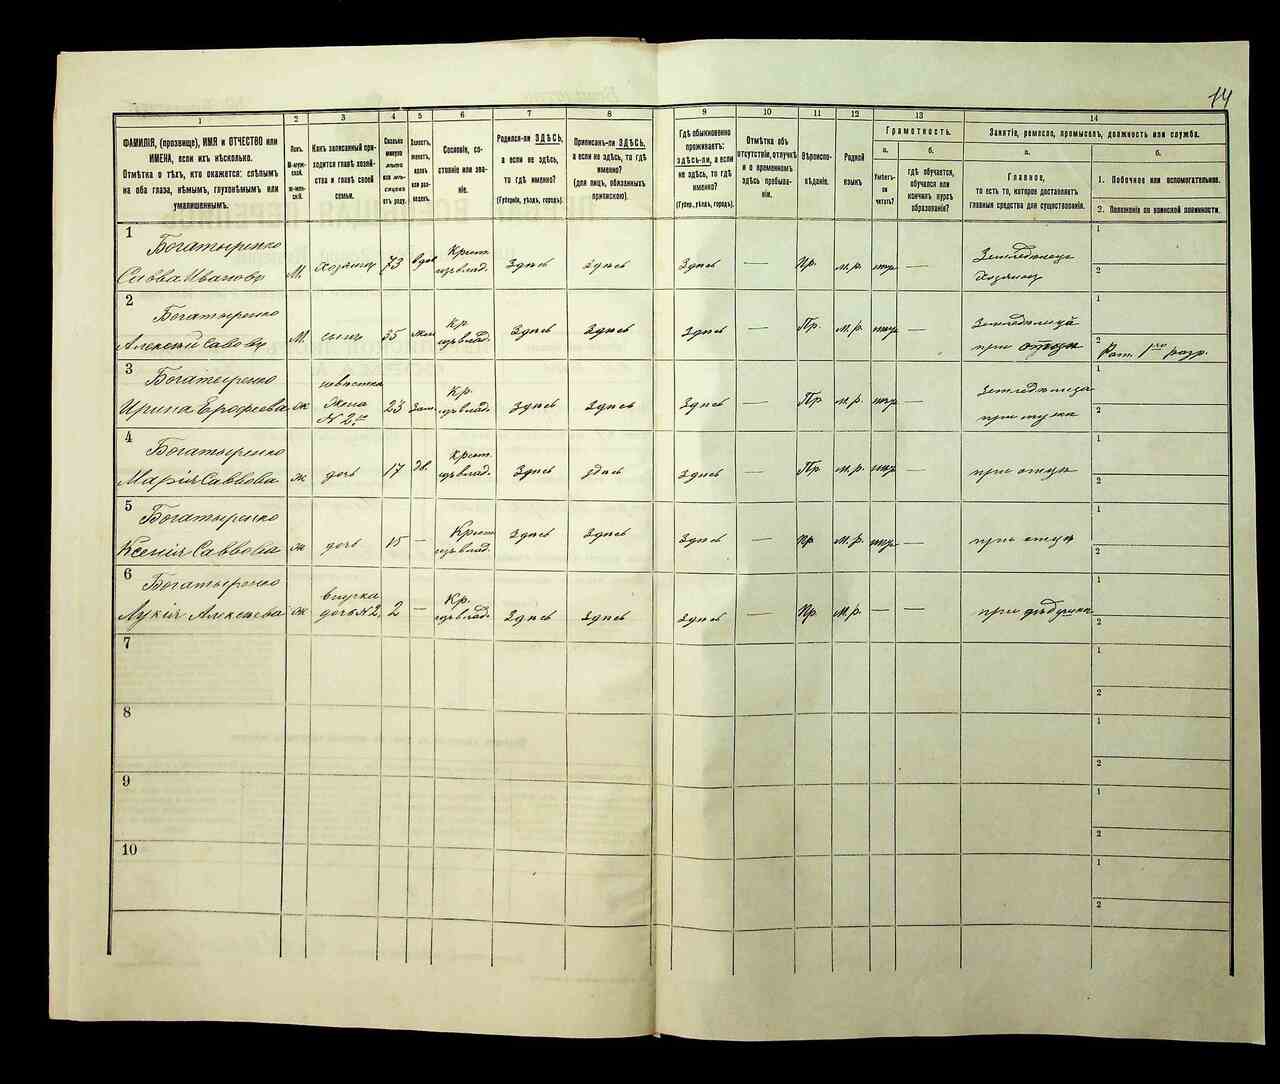 14
1
2
3
4
5
6
7
8
9
10
11
12
13
14
ФАМИЛІЯ, (прозвище), ИМЯ и ОТЧЕСТВО или
ИМЕНА, если ихъ нѣсколько.
Отмѣтка о тѣхъ, кто окажется: слѣпымъ
на оба глаза, нѣмымъ, глухонѣмымъ или
умалишеннымъ.
Полъ.
М-муж-
ской.
Ж-жен-
скій.
Какъ записанный при-
ходится главѣ хозяй-
ства и главѣ своей
семьи.
Сколько
минуло
лѣтъ
или мѣ-
сяцевъ
отъ роду.
Холостъ,
женатъ,
вдовъ
или раз-
веденъ.
Сословіе, со-
стояніе или зва-
ніе.
Родился-ли ЗДѢСЬ,
а если не здѣсь,
то гдѣ именно?
(Губернія, уѣздъ, городъ).
Приписанъ-ли ЗДѢСЬ,
а если не здѣсь, то гдѣ
именно?
(для лицъ, обязанныхъ
припискою).
Гдѣ обыкновенно
проживаетъ:
здѣсь-ли, а если
не здѣсь, то гдѣ
именно?
(Губер., уѣздъ, городъ).
Отмѣтка объ
отсутствіи, отлучкѣ
и о временномъ
здѣсь пребыва-
ніи.
Вѣроиспо-
вѣданіе.
Родной
языкъ
Грамотность.
а.
Умѣетъ-
ли
читать?
б.
гдѣ обучается,
обучался или
кончилъ курсъ
образованія?
Занятіе, ремесло, промыселъ, должность или служба.
а.
Главное,
то есть то, которое доставляетъ
главныя средства для существованія.
б.
1. Побочное или вспомогательное.
2. Положеніе по воинской повинности.
1
Богатыренко
Савва Ивановъ
М.
Хозяинъ
73
вдов
Крест.
изъ влад.
Здѣсь
здѣсь
Здѣсь
—
Пр.
м.р.
нѣтъ
—
Земледѣлецъ
Хозяинъ
1
2
2
Богатыренко
Алексѣй Саввовъ
М.
сынъ
35
жен
Кр.
изъ влад.
Здѣсь
Здѣсь
Здѣсь
—
Пр.
м.р.
нѣтъ
—
при отцѣ
1
2
Рат. 1го разр.
3
Богатыренко
Ирина Ерофеева
ж
невѣстка
жена
N 2го
23
Зам.
Кр.
изъ влад.
Здѣсь
Здѣсь
Здѣсь
—
Пр
м.р.
нѣтъ
—
при мужѣ
1
2
4
Богатыренко
Марія Саввова
ж
дочь
17
дв.
Крест.
изъ влад.
Здѣсь
здѣсь
Здѣсь
—
Пр
м.р.
нѣтъ
—
при отцѣ
1
2
5
Богатыренко
Ксенія Саввова
ж
дочь
15
—
Крест.
изъ влад.
Здѣсь
Здѣсь
Здѣсь
—
Пр
м.р.
нѣтъ
—
при отцѣ
1
2
6
Богатыренко
Лукія Алексѣева
ж
внучка
дочь N 2
2
—
Кр.
изъ влад.
Здѣсь
Здѣсь
Здѣсь
—
Пр.
м.р.
—
—
при дѣдушкѣ
1
2
7
1
2
8
1
2
9
1
2
10
1
2